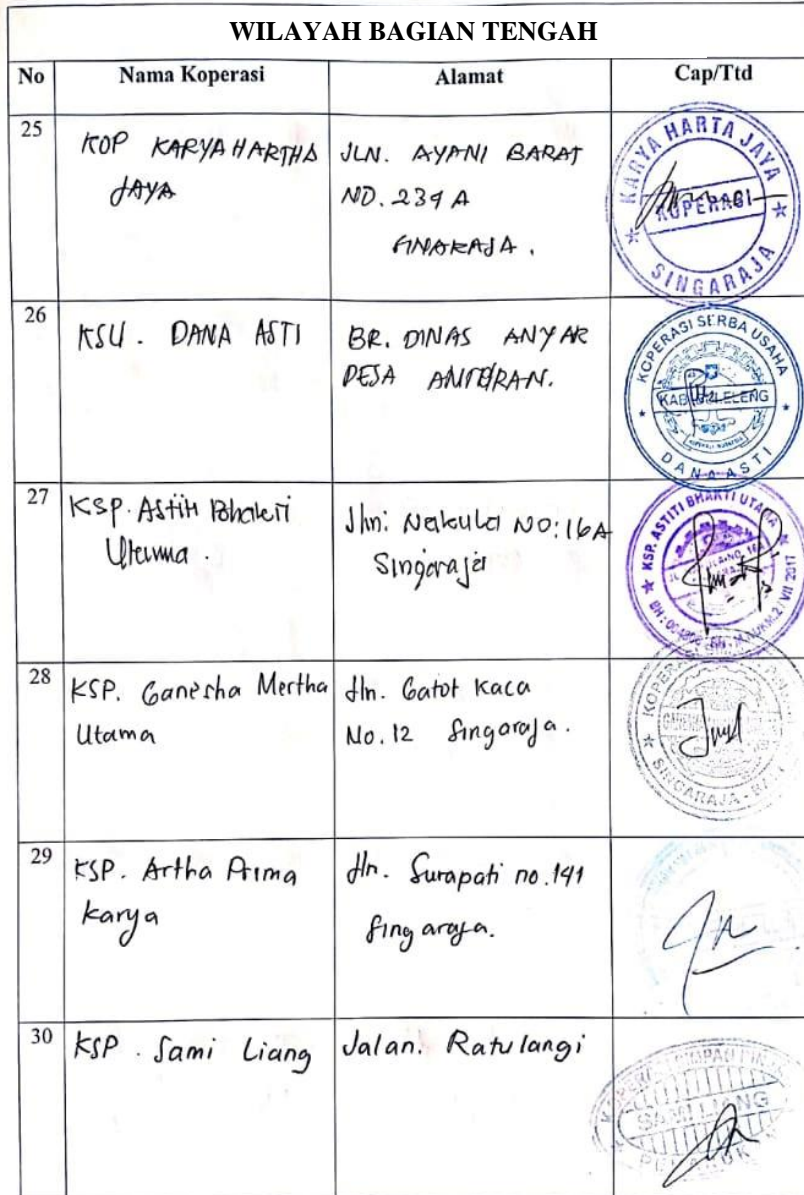 WILAYAH BAGIAN TENGAH
No Nama Koperasi Alamat Cap/Ttd
25
KOP KARYA HARTHA
JAYA
JLN. AYANI BARAT
NO. 239 A
KARYA HARTA JAYA
KOPERASI
SINGARAJA
26
KSU. DANA ASTI
BR. DINAS ANYAR
DESA
KOPERASI SERBA USAHA
KAB BULELENG
DANA ASTI
27
KSP. Astiti Bhakti
Utama.
Jln: Nakula NO: 16A
Singaraja
KSP. ASTITI BHAKTI UTAMA
28
KSP. Ganesha Mertha
Utama
Jln. Gatot Kaca
No. 12 Singaraja.
SINGARAJA - BALI
29
KSP. Artha Prima
Karya
Jln. Surapati no. 141
Singaraja.
30
KSP. Sami Liang
Jalan: Ratulangi
SAMI LIANG